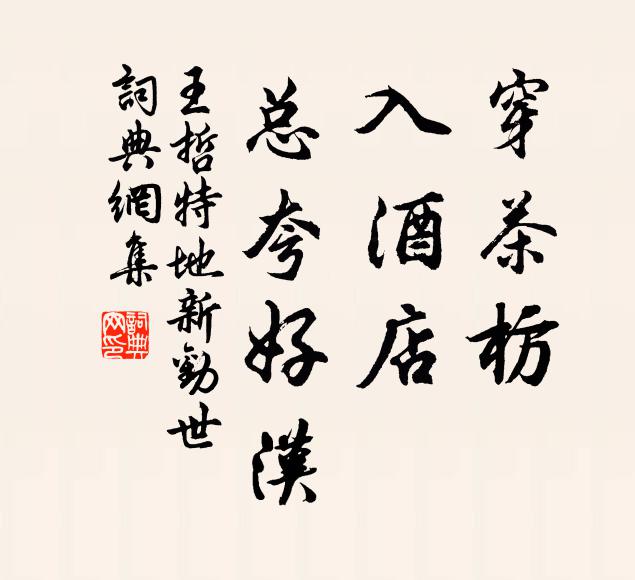 穿茶枋
入酒店
总夸好漢
王哲特地新勸世
詞典網集
詞典
网印